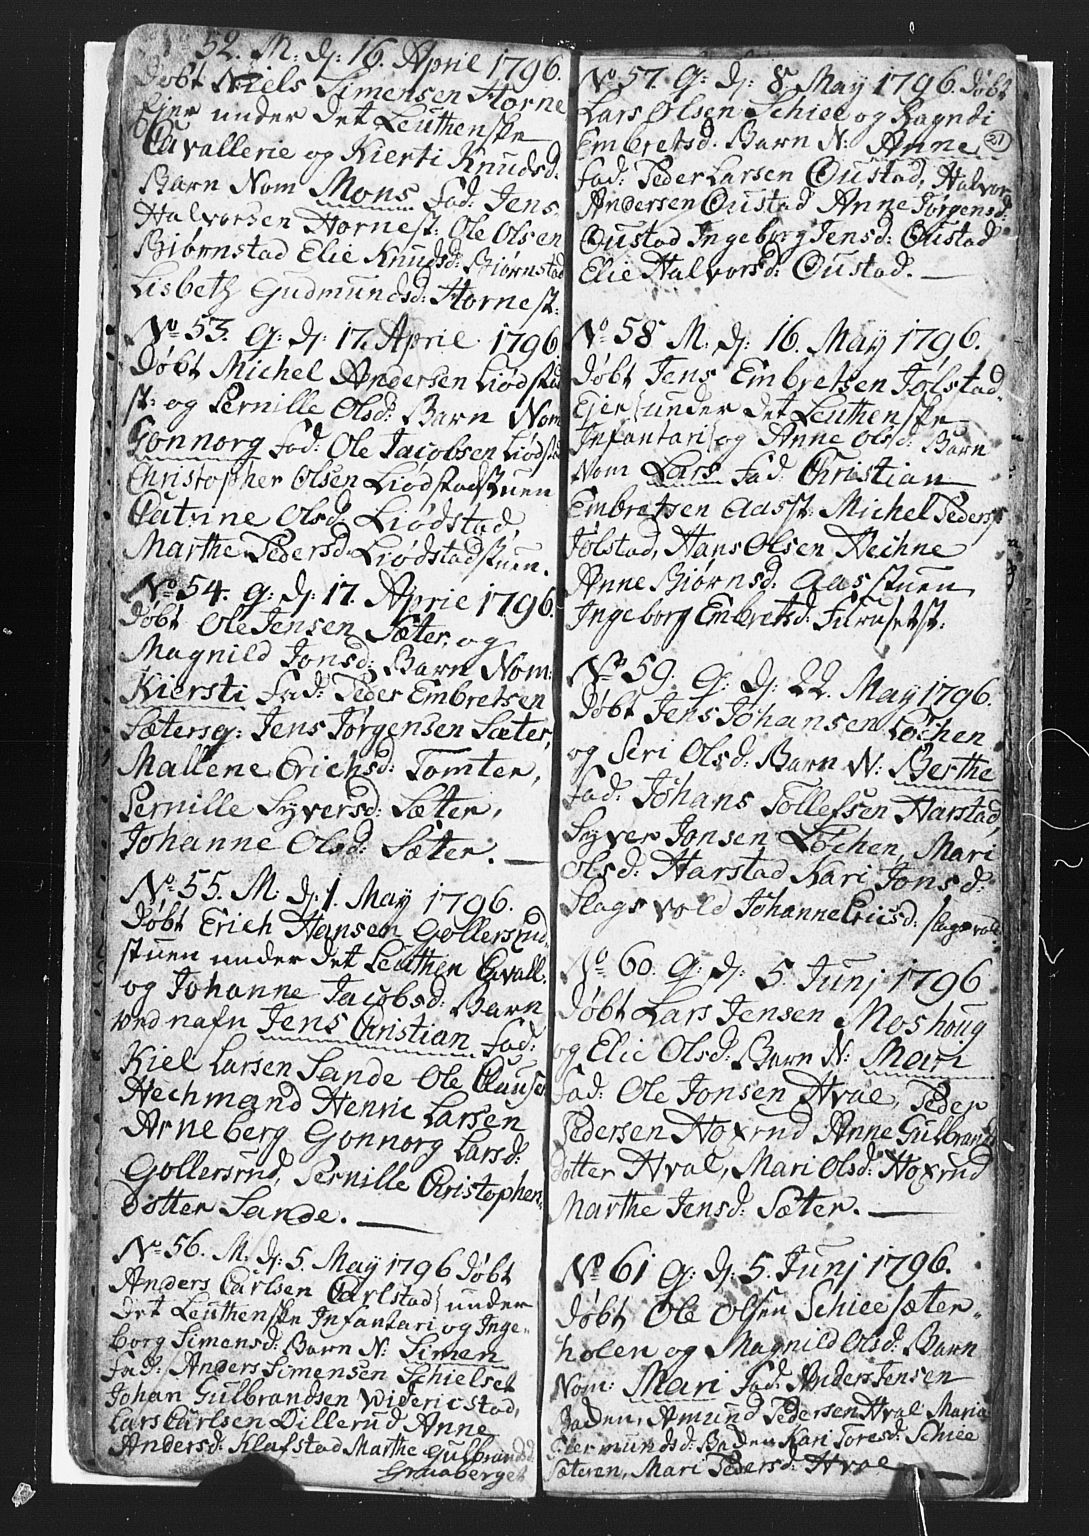 52. M: dj: 16. April 1796.
Døbt Niels Simensen Horne
Ejer under det Leuthenske
Cavallerie og Kierti Knudsd:
Barn Nom Mons fad: Jens
Halvorsen Hornest: Ole Olsen
Biørnstad Elie Knudsd: Biørnstad
Lisbeth Gudmundsd: Hornest:
No 53. G: dj: 17. April 1796
Døbt Michel Andersen Liødstad
st: og Pernille Olsd: Barn Nom
Gonnorg fad: Ole Jacobsen Liødst
Christopher Olsen Liødstadstuen
Catrine Olsd: Liødstad,
Marthe Pedersd: Liødstadstuen.
No 54. G: dj: 17. April 1796.
Døbt Ole Jensen Sæter, og
Magnild Jonsd: Barn Nom:
Kiersti fad: Peder Embretsen
Sætersg: Jens Jørgensen Sæter,
Mallene Erichsd: Tomter,
Pernille Syversd: Sæter,
Johanne Olsd: Sæter. —
No 55. M: dj: 1. May 1796.
Døbt Erich Hansen Gollersrud-
stuen under det Leuthen Cavall.
og Johanne Jacobsd: Barn
ved nafn Jens Christian fad:
Kiel Larsen Sande Ole Clausen
Hechmand Henric Larsen
Arneberg Gonnorg Larsd:
Gollersrud, Pernille Christophen-
dotter Sande. —
No 56. M. dj: 5. May 1796 Døbt
Anders Carlsen Carlstad under
det Leuthenske Infantari og Inge-
borg Simensd: Barn N: Simen
fad: Anders Simensen Schielset
Johan Gulbrandsen Widericstad,
Lars Carlsen Dillerud Anne
Andersd: Klafstad Marthe Gulbrandsd:
Graaberget
No 57. G: dj: 8. May 1796. Døbt
Lars Olsen Schiee og Ragndi
Embretsd: Barn N: Anne
21
fad: Peder Larsen Oustad, Halvor
Andersen Oustad Anne Jørgensd:
Oustad Ingeborg Jensd: Oustad
Elie Halvorsd: Oustad. —
No 58 M. dj: 16. May 1796.
Døbt Jens Embretsen Jølstad.
Ejer under det Leuthenske
Infantari og Anne Olsd: Barn
Nom Lars fad: Christian
Embretsen Aasst: Michel Peders
Jølstad, Hans Olsen Hechne
Anne Biørnsd: Aasstuen
Ingeborg Embretsd: Furusetst:
No 59. G: dj: 22. May 1796.
Døbt Jens Johansen Løchen
og Seri Olsd: Barn N: Berthe
fad: Johans Tollefsen Harstad,
Syver Jonsen Løchen, Mari
Olsd: Harstad Kari Jonsd:
Slagsvold Johanne Eriisd: slagsvold
No 60. G: dj: 5. Junj 1796
Døbt Lars Jensen Moshoug
og Elie Olsd: Barn N: Mari
fad: Ole Jonsen Hval, Peder
Pedersen Hoxrud Anne Gulbrands
dotter Hval, Mari Olsd: Hoxrud
Marthe Jensd: Sæter. —
No 61 G: dj: 5. Junj 1796.
Døbt Ole Olsen Schieesæter-
holen og Magnild Olsd: Barn
Nom: Mari fad: Anders Jensen
Baden, Amund Pedersen Hval Maria
Giermundsd: Baden Kari Toresd: Schiee
Sæteren, Mari Pedersd: Hval —